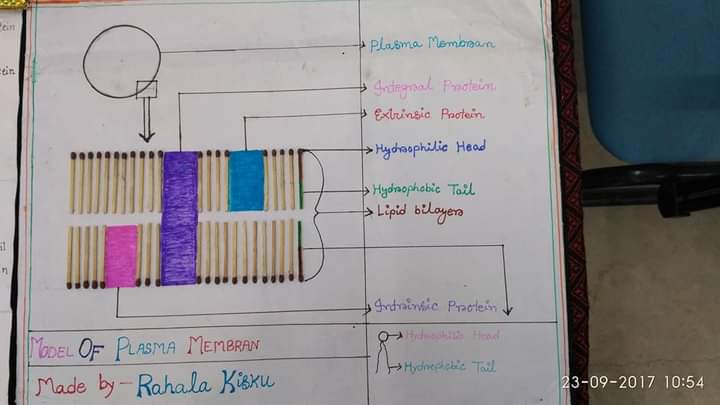 Plasma Membran
Integral Protein
Extrinsic Protein
Hydrophilic Head
Hydrophobic Tail
Lipid bilayers
Intrinsic Protein
MODEL OF PLASMA MEMBRAN
Hydrophilic Head
Made by - Rahala Kisku
Hydrophobic Tail
23-09-2017 10:54